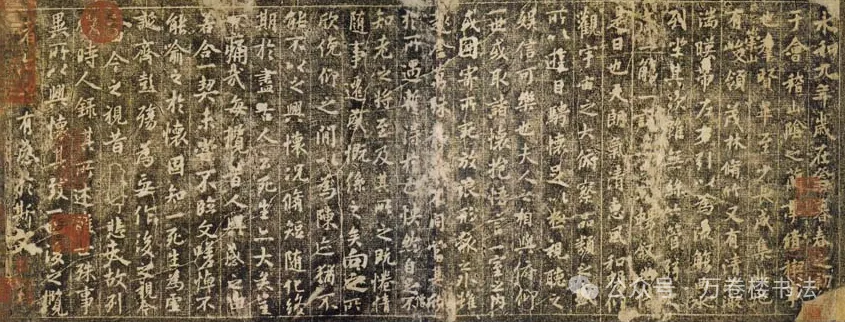 永和九年歲在癸丑暮春之初會
于會稽山陰之蘭亭脩禊事
也羣賢畢至少長咸集此地
有崇山峻領茂林脩竹又有清流激
湍暎帶左右引以為流觴曲水
列坐其次雖無絲竹管弦之
一觴一詠
是日也天朗氣清惠風和暢仰
觀宇宙之大俯察品類之盛
所以遊目騁懷足以極視聽之
娛信可樂也夫人之相與俯仰
一世或取諸懷抱悟言一室之內
或因寄所託放浪形骸之外雖
趣舍萬殊靜躁不同當其欣
於所遇暫得於己快然自足不
知老之將至及其所之既惓情
隨事遷感慨係之矣向之所
欣俛仰之間以為陳迹猶不
能不以之興懷況脩短隨化終
期於盡古人云死生亦大矣豈
不痛哉每攬昔人興感之由
若合一契未嘗不臨文嗟悼不
能喻之於懷固知一死生為虛
誕齊彭殤為妄作後之視今
亦由今之視昔悲夫故列
敘時人錄其所述雖世殊事
異所以興懷其致一也後之攬
者亦將有感於斯文
公众号 万卷楼书法